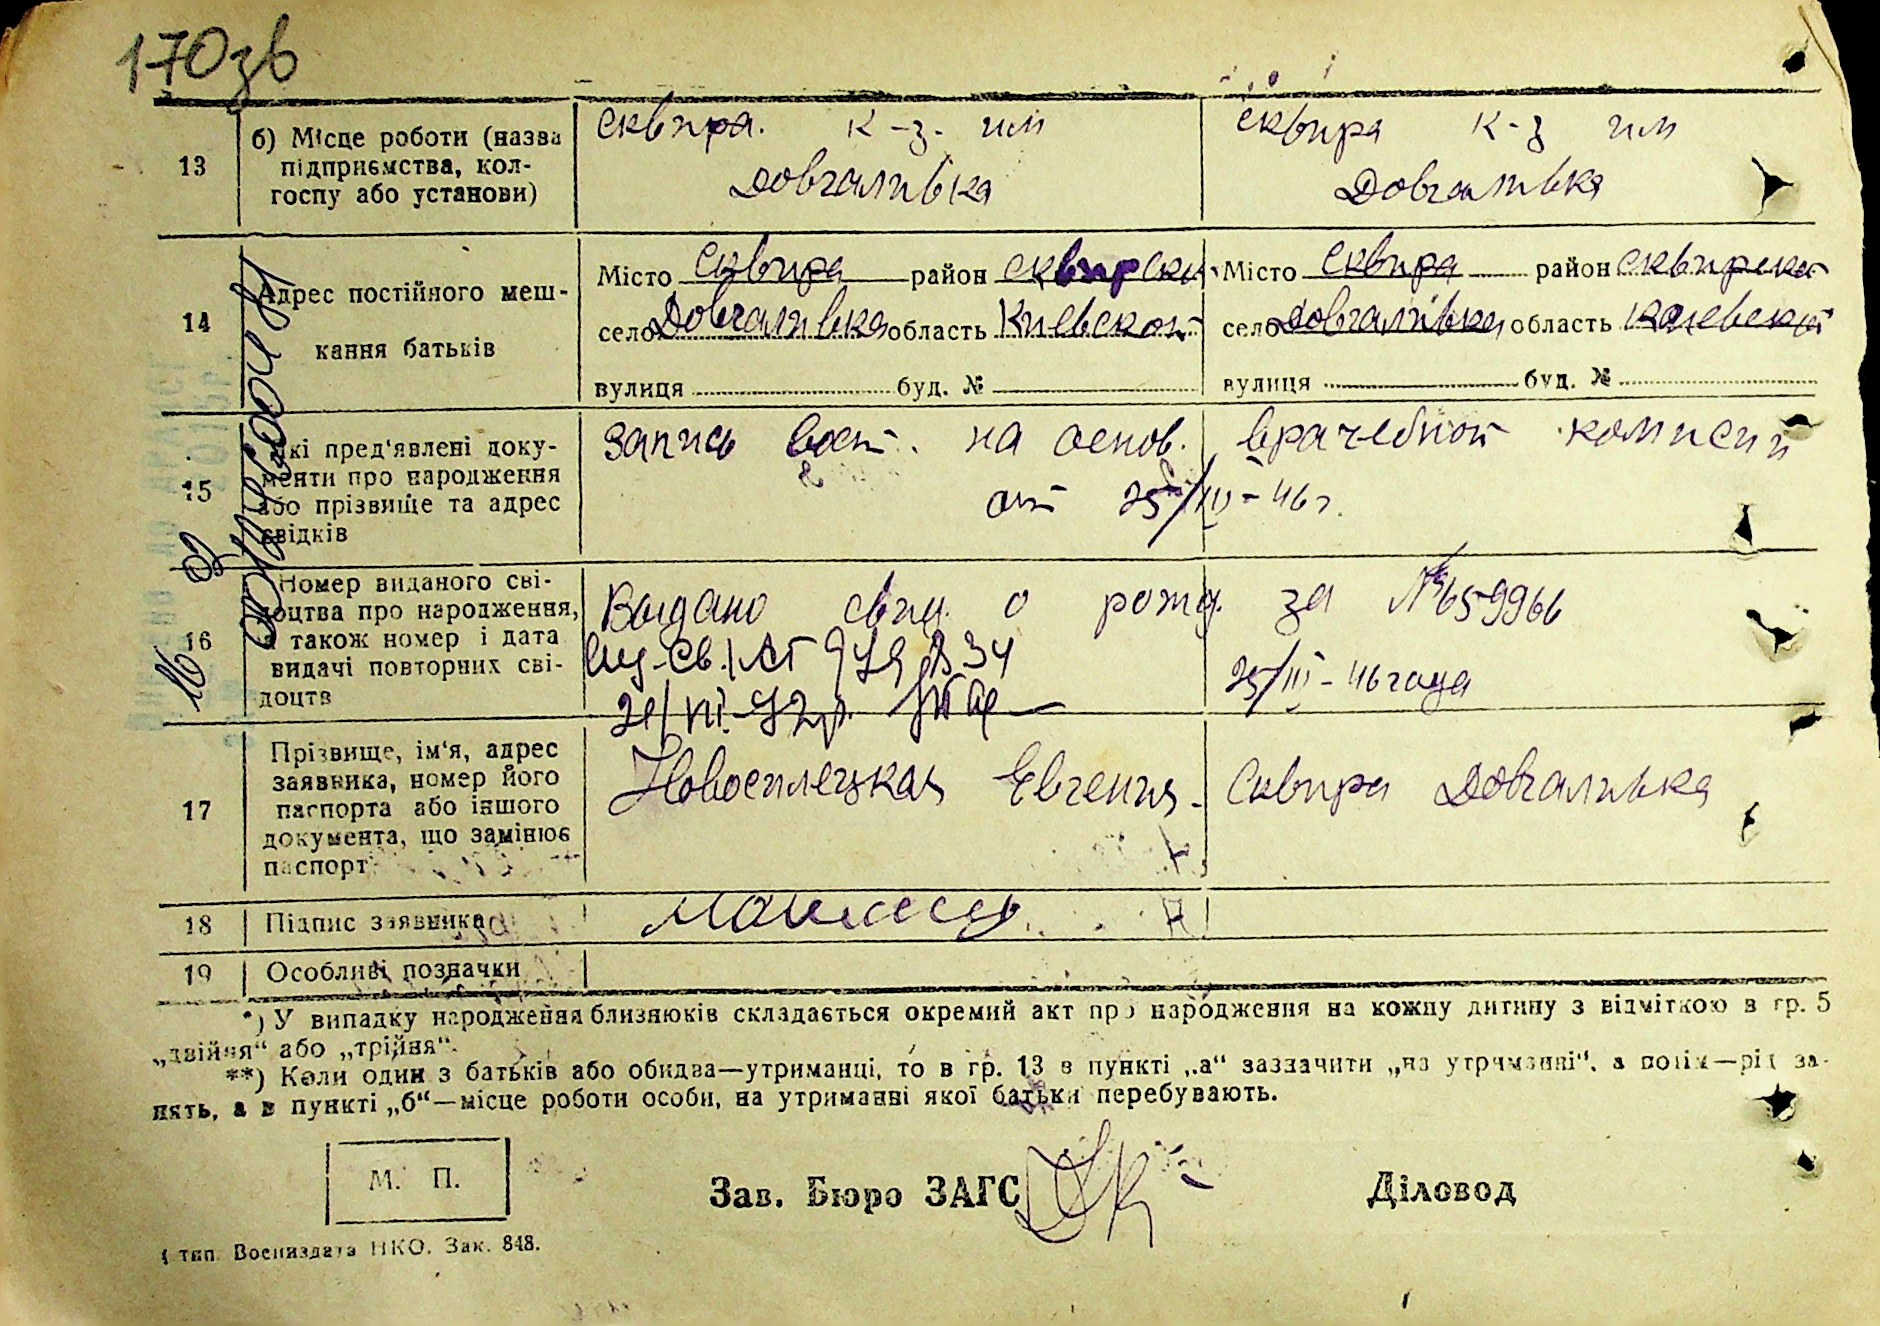 170зв
13
б) Місце роботи (назва
підприємства, кол-
госпу або установи)
Сквира. к-з- им
Довгаливка
Сквира к-з им
Довгаливка
14
Адрес постійного меш-
кання батьків
Місто Сквира район Сквирски
село Довгаливка область Киевской
вулиця буд. №
Місто Сквира район Сквирской
село Довгаливка область Киевской
вулиця буд. №
15
Які пред'явлені доку-
менти про народження
або прізвище та адрес
свідків
Запись вост. на основ. врачебной комисии
от 25/III-46г.
16
Номер виданого сві-
доцтва про народження,
а також номер і дата
видачі повторних сві-
доцтв
Выдано свид. о рожд. за № 659966
25/III-46 года
17
Прізвище, ім'я, адрес
заявника, номер його
паспорта або іншого
документа, що замінює
паспорт
Новоселецкая Евгения. Сквира Довгаливка
18
Підпис заявника
19
Особливі позначки
*) У випадку народження близнюків складається окремий акт про народження на кожну дитину з відміткою в гр. 5
„двійня“ або „трійня“.
**) Коли один з батьків або обидва—утриманці, то в гр. 13 в пункті „а“ зазначити „на утриманні“, а потім—рід за-
нять, а в пункті „б“—місце роботи особи, на утриманні якої батьки перебувають.
М. П.
Зав. Бюро ЗАГС
Діловод
тип. Воениздата НКО. Зак. 848.